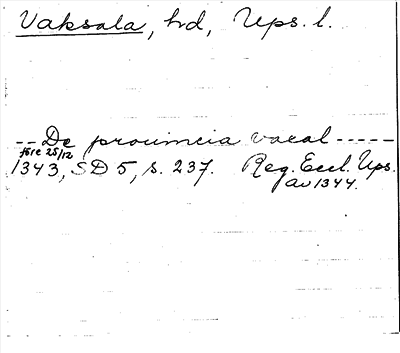 Vaksala, hd, Ups. l.
-- De prouincia vacal -----
före 25/12
1343, SD 5, s. 237. Reg. Eccl. Ups.
av 1344.